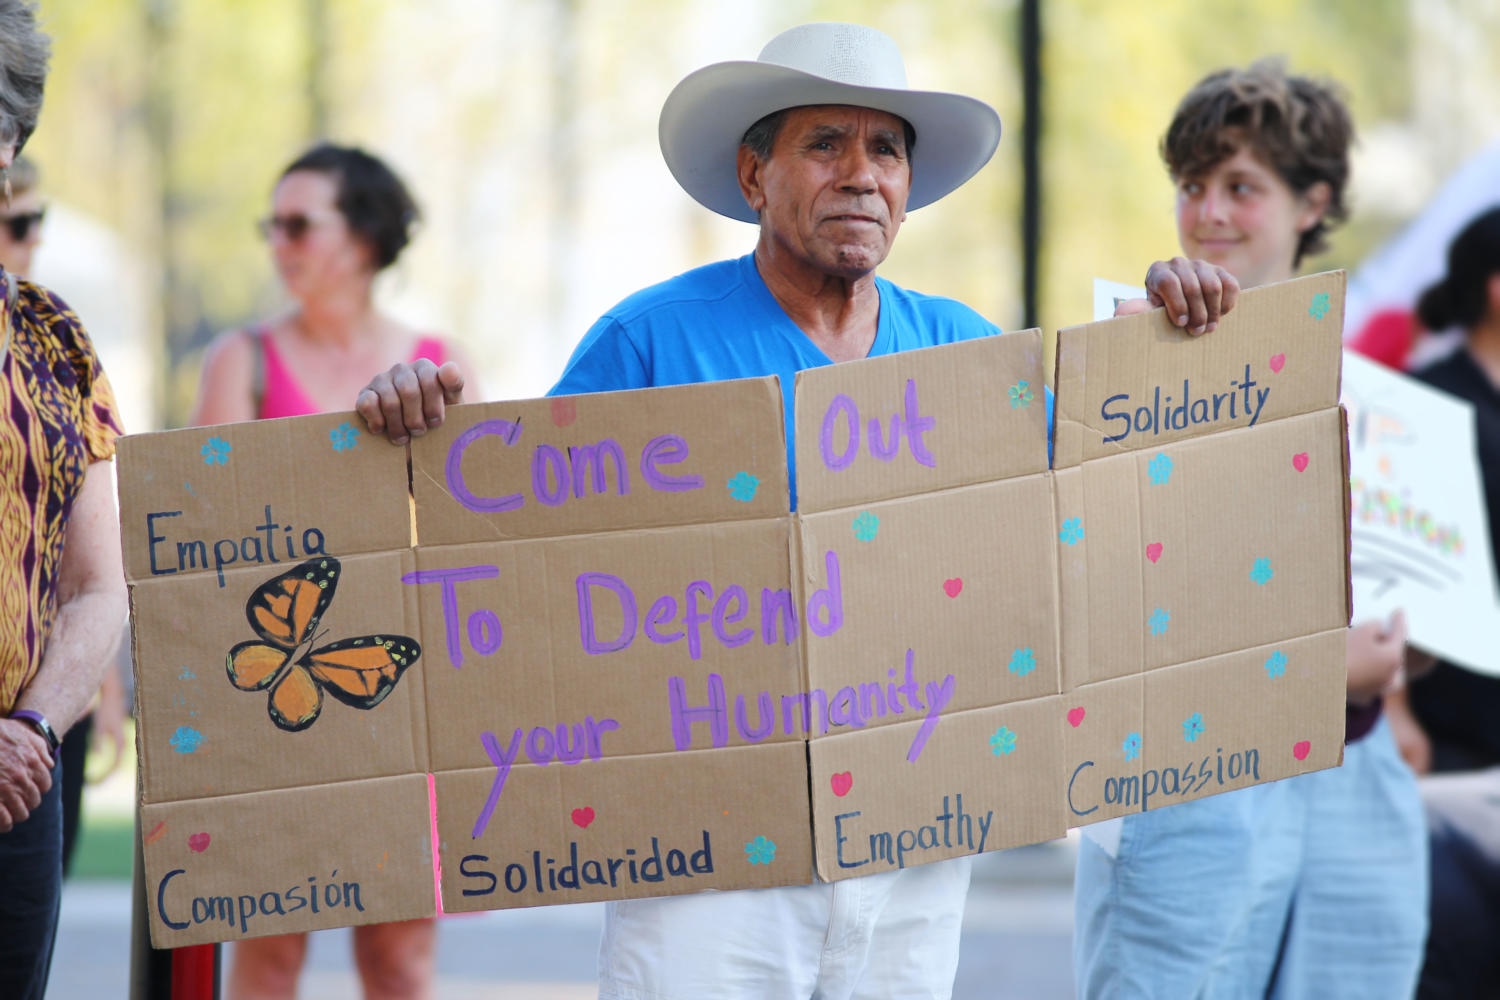 Come Out
Solidarity
Empatia
To Defend
your Humanity
Compassion
Empathy
Solidaridad
Compasión